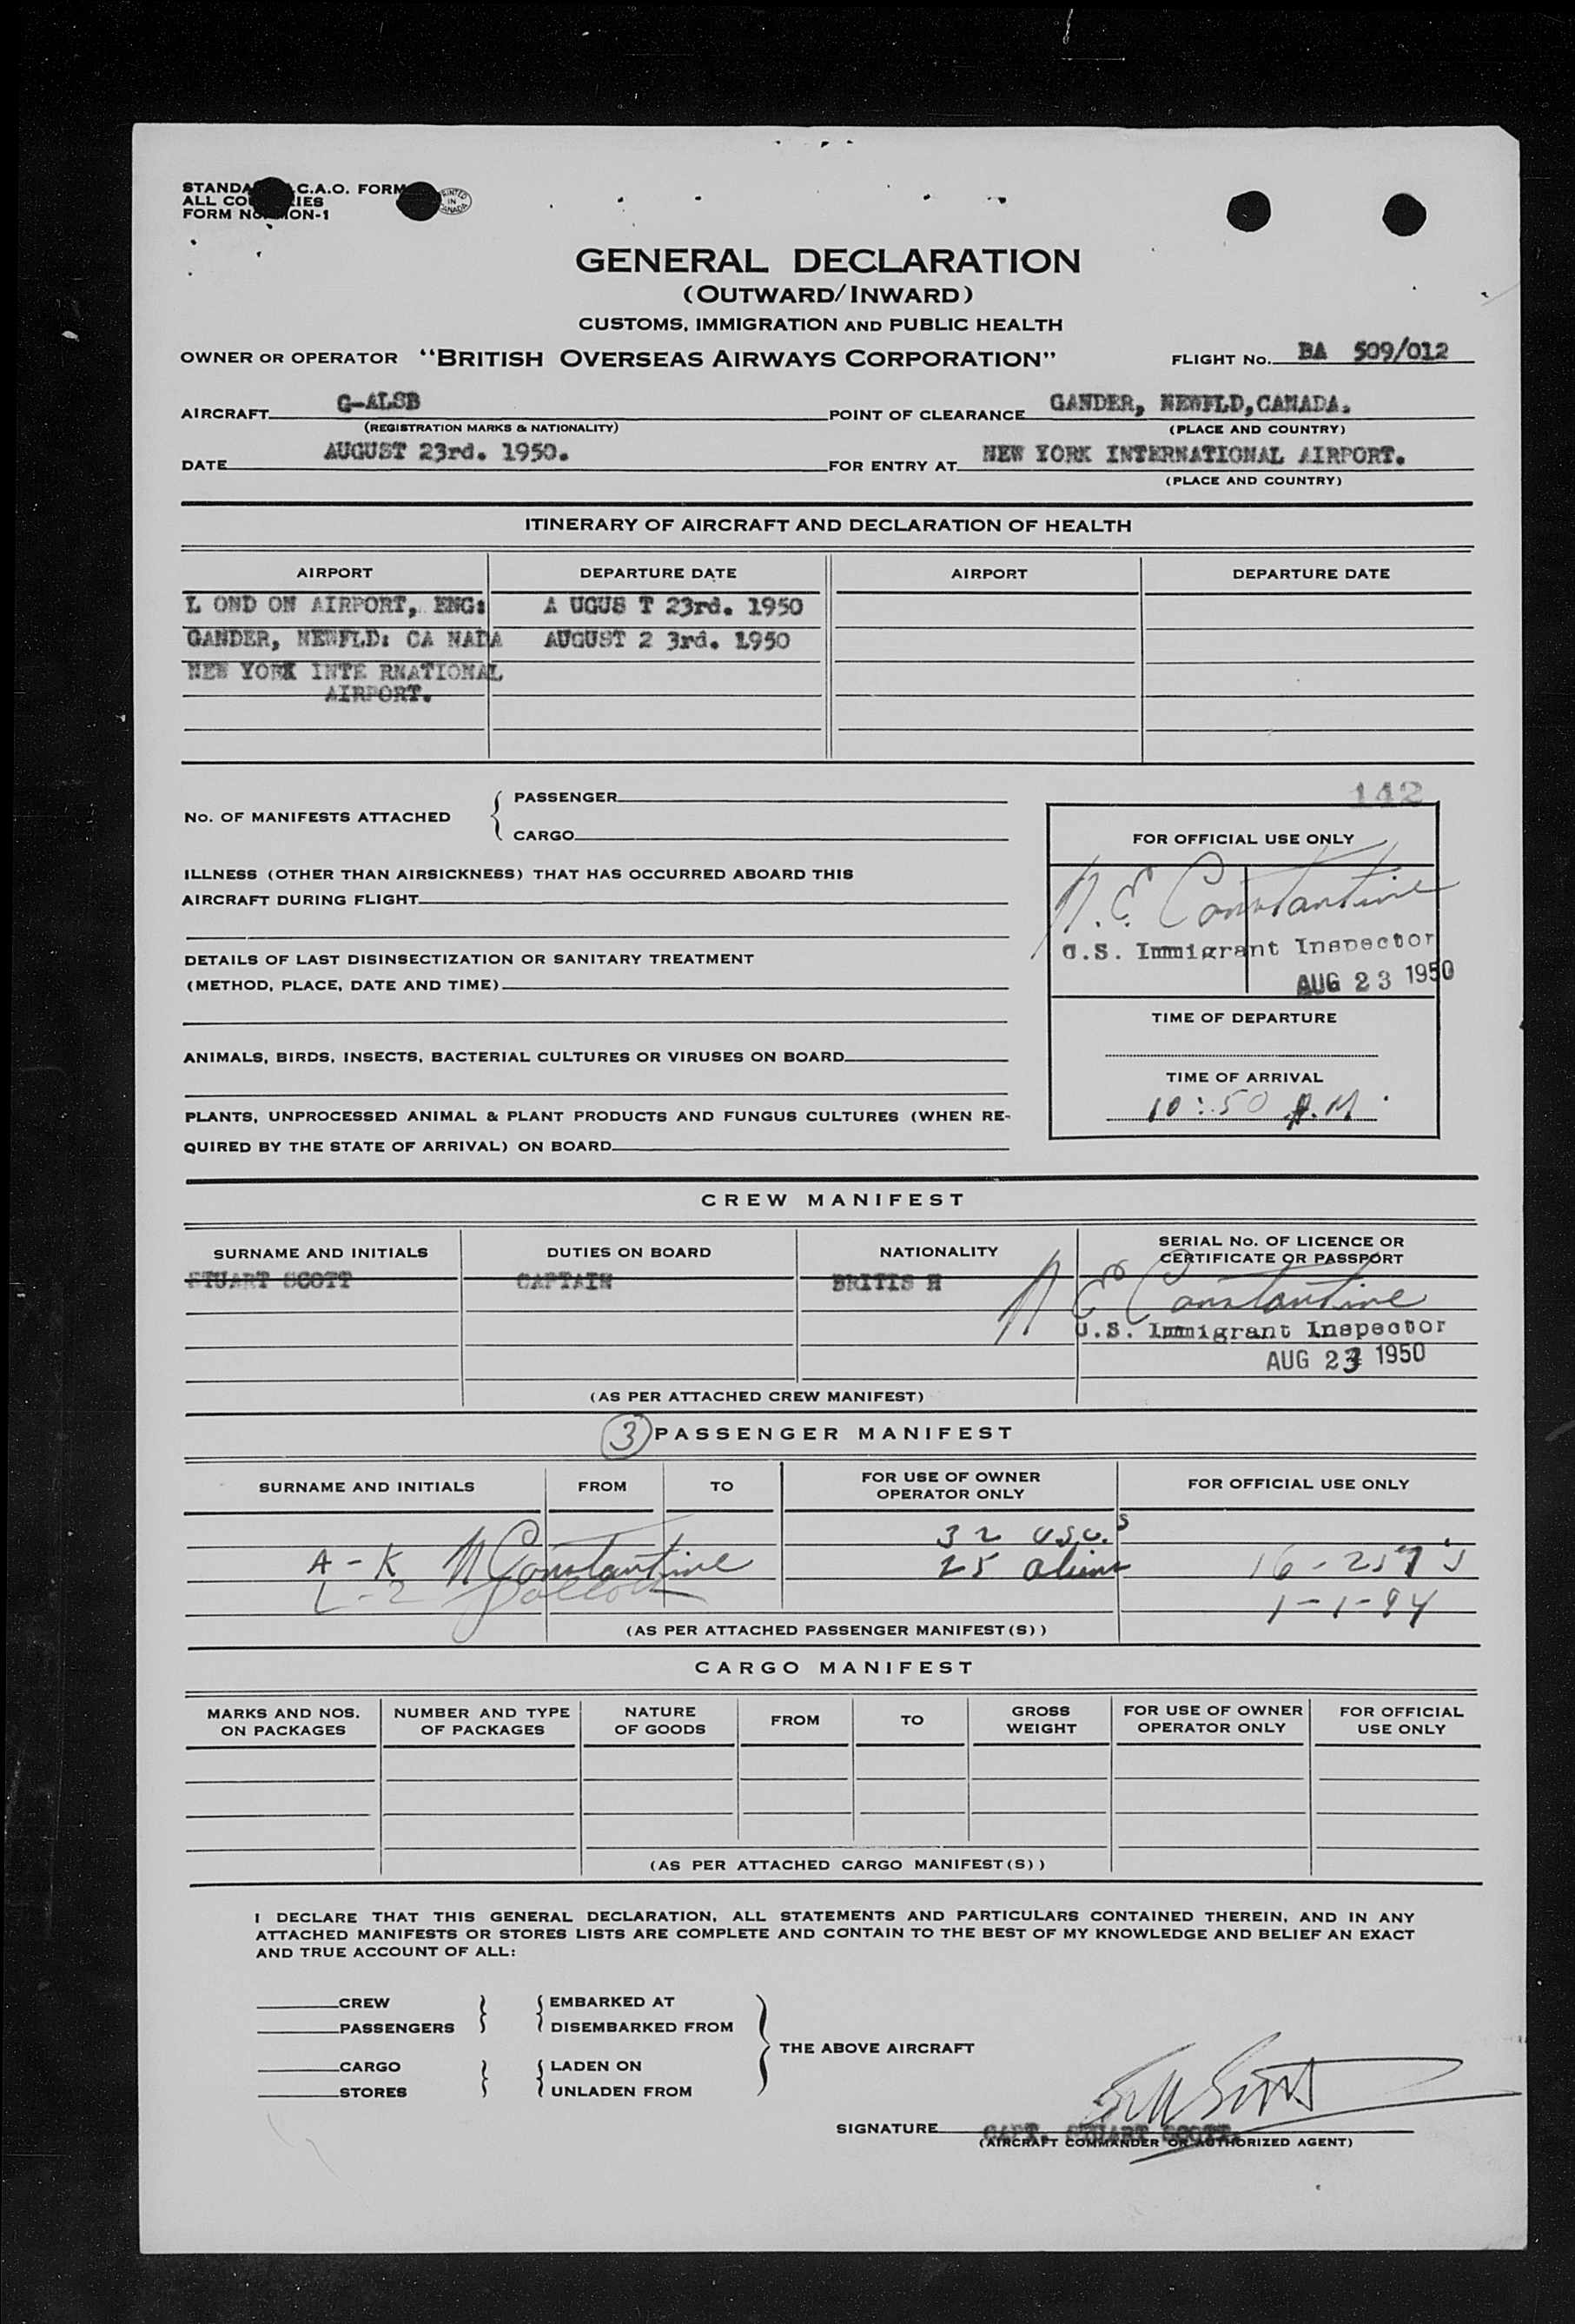 STANDA C.A.O. FORM
ALL CO RIES
FORM No ION-1
PRINTED IN CANADA
GENERAL DECLARATION
(OUTWARD/INWARD)
CUSTOMS, IMMIGRATION AND PUBLIC HEALTH
OWNER OR OPERATOR "BRITISH OVERSEAS AIRWAYS CORPORATION" FLIGHT No. BA 509/012
AIRCRAFT G-ALSB POINT OF CLEARANCE GANDER, NEWFLD,CANADA.
(REGISTRATION MARKS & NATIONALITY) (PLACE AND COUNTRY)
DATE AUGUST 23rd. 1950. FOR ENTRY AT NEW YORK INTERNATIONAL AIRPORT.
(PLACE AND COUNTRY)
ITINERARY OF AIRCRAFT AND DECLARATION OF HEALTH
AIRPORT DEPARTURE DATE AIRPORT DEPARTURE DATE
L OND ON AIRPORT, ENG: A UGUS T 23rd. 1950
GANDER, NEWFLD: CA NADA AUGUST 2 3rd. 1950
NEW YORK INTE RNATIONAL
AIRPORT.
142
No. OF MANIFESTS ATTACHED { PASSENGER
CARGO
FOR OFFICIAL USE ONLY
ILLNESS (OTHER THAN AIRSICKNESS) THAT HAS OCCURRED ABOARD THIS
AIRCRAFT DURING FLIGHT
N. E. Constantine
U.S. Immigrant Inspector
AUG 23 1950
DETAILS OF LAST DISINSECTIZATION OR SANITARY TREATMENT
(METHOD, PLACE, DATE AND TIME)
TIME OF DEPARTURE
ANIMALS, BIRDS, INSECTS, BACTERIAL CULTURES OR VIRUSES ON BOARD
TIME OF ARRIVAL
10:50 A.M.
PLANTS, UNPROCESSED ANIMAL & PLANT PRODUCTS AND FUNGUS CULTURES (WHEN RE-
QUIRED BY THE STATE OF ARRIVAL) ON BOARD
CREW MANIFEST
SURNAME AND INITIALS DUTIES ON BOARD NATIONALITY SERIAL No. OF LICENCE OR
CERTIFICATE OR PASSPORT
STUART SCOTT CAPTAIN BRITIS H
N E Constantine
U.S. Immigrant Inspector
AUG 23 1950
(AS PER ATTACHED CREW MANIFEST)
3 PASSENGER MANIFEST
SURNAME AND INITIALS FROM TO FOR USE OF OWNER
OPERATOR ONLY FOR OFFICIAL USE ONLY
32 USC.s
A - K N Constantine 25 aliens 16 - 257's
1-1-94
(AS PER ATTACHED PASSENGER MANIFEST(S))
CARGO MANIFEST
MARKS AND NOS.
ON PACKAGES NUMBER AND TYPE
OF PACKAGES NATURE
OF GOODS FROM TO GROSS
WEIGHT FOR USE OF OWNER
OPERATOR ONLY FOR OFFICIAL
USE ONLY
(AS PER ATTACHED CARGO MANIFEST(S))
I DECLARE THAT THIS GENERAL DECLARATION, ALL STATEMENTS AND PARTICULARS CONTAINED THEREIN, AND IN ANY
ATTACHED MANIFESTS OR STORES LISTS ARE COMPLETE AND CONTAIN TO THE BEST OF MY KNOWLEDGE AND BELIEF AN EXACT
AND TRUE ACCOUNT OF ALL:
CREW EMBARKED AT
PASSENGERS DISEMBARKED FROM
THE ABOVE AIRCRAFT
CARGO LADEN ON
STORES UNLADEN FROM
SIGNATURE CAPT. STUART SCOTT.
(AIRCRAFT COMMANDER OR AUTHORIZED AGENT)